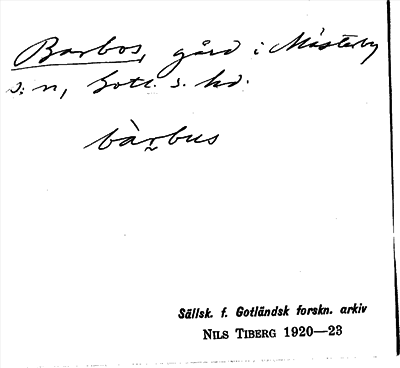 Barbos, gård i Mästerby
s:n, Gotl. s. hd.
bàrbus
Sällsk. f. Gotländsk forskn. arkiv
NILS TIBERG 1920—23